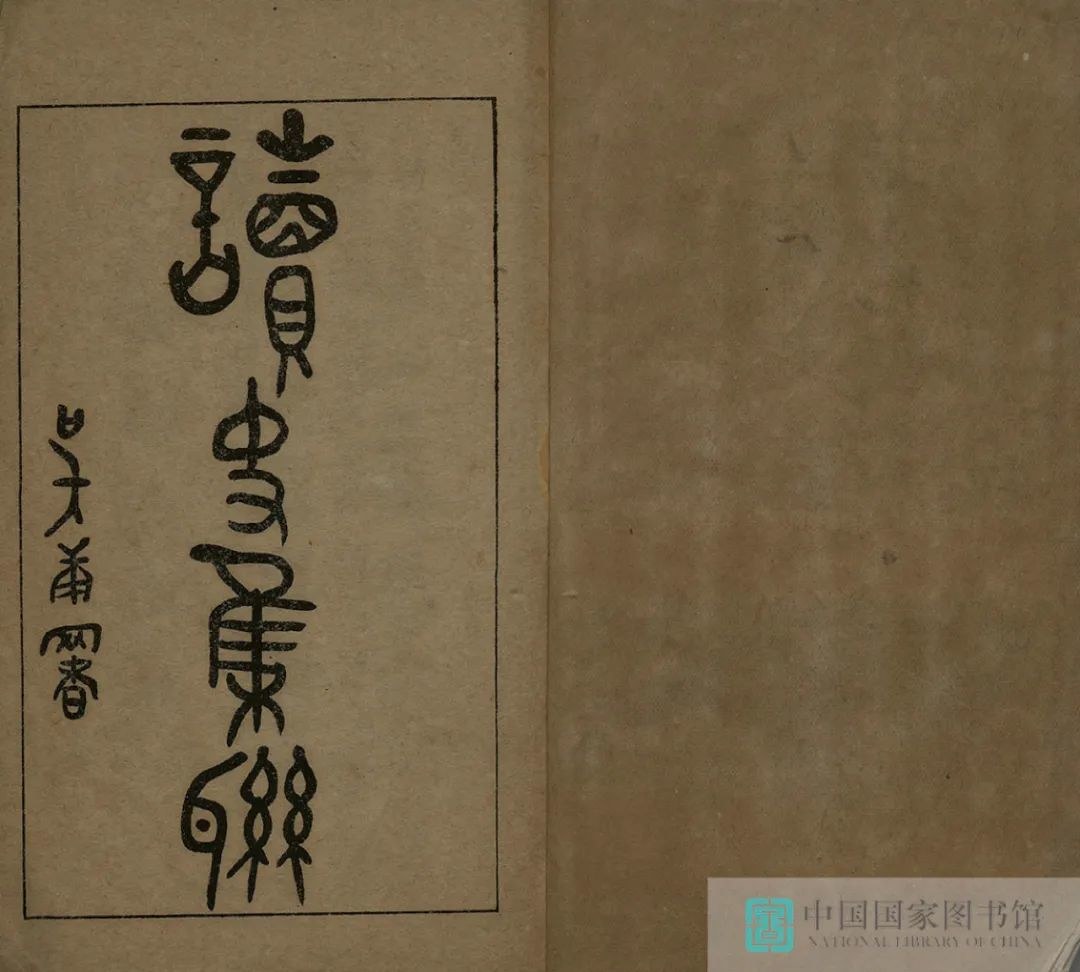 讀史集聯
吳大莆署
中国国家图书馆
NATIONAL LIBRARY OF CHINA